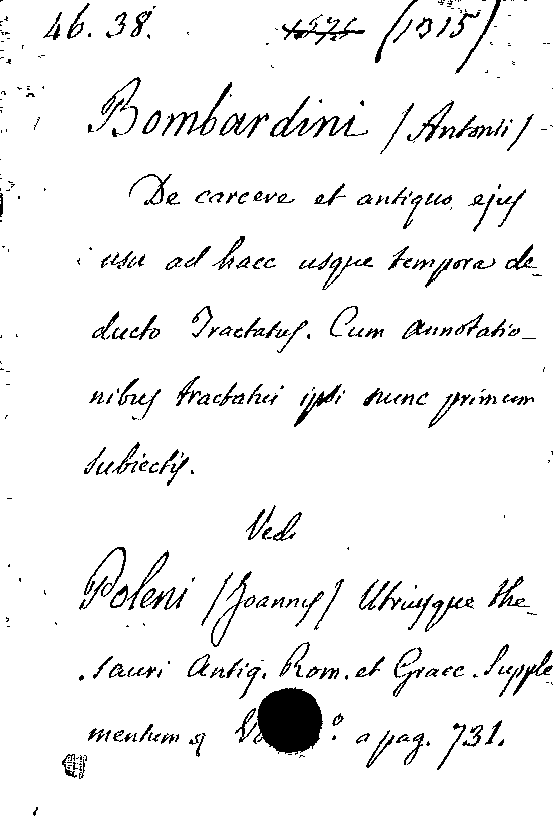 46. 38. 1571 (1315)
Bombardini (Antonii)
De carcere et antiquo ejus
usu ad haec usque tempora de-
ducto Tractatus. Cum annotatio-
nibus tractatui ipsi nunc primum
subiectis.
Vedi
Poleni (Joannis) Utriusque the-
sauri Antiq. Rom. et Graec. Supple
mentum a pag. 731.